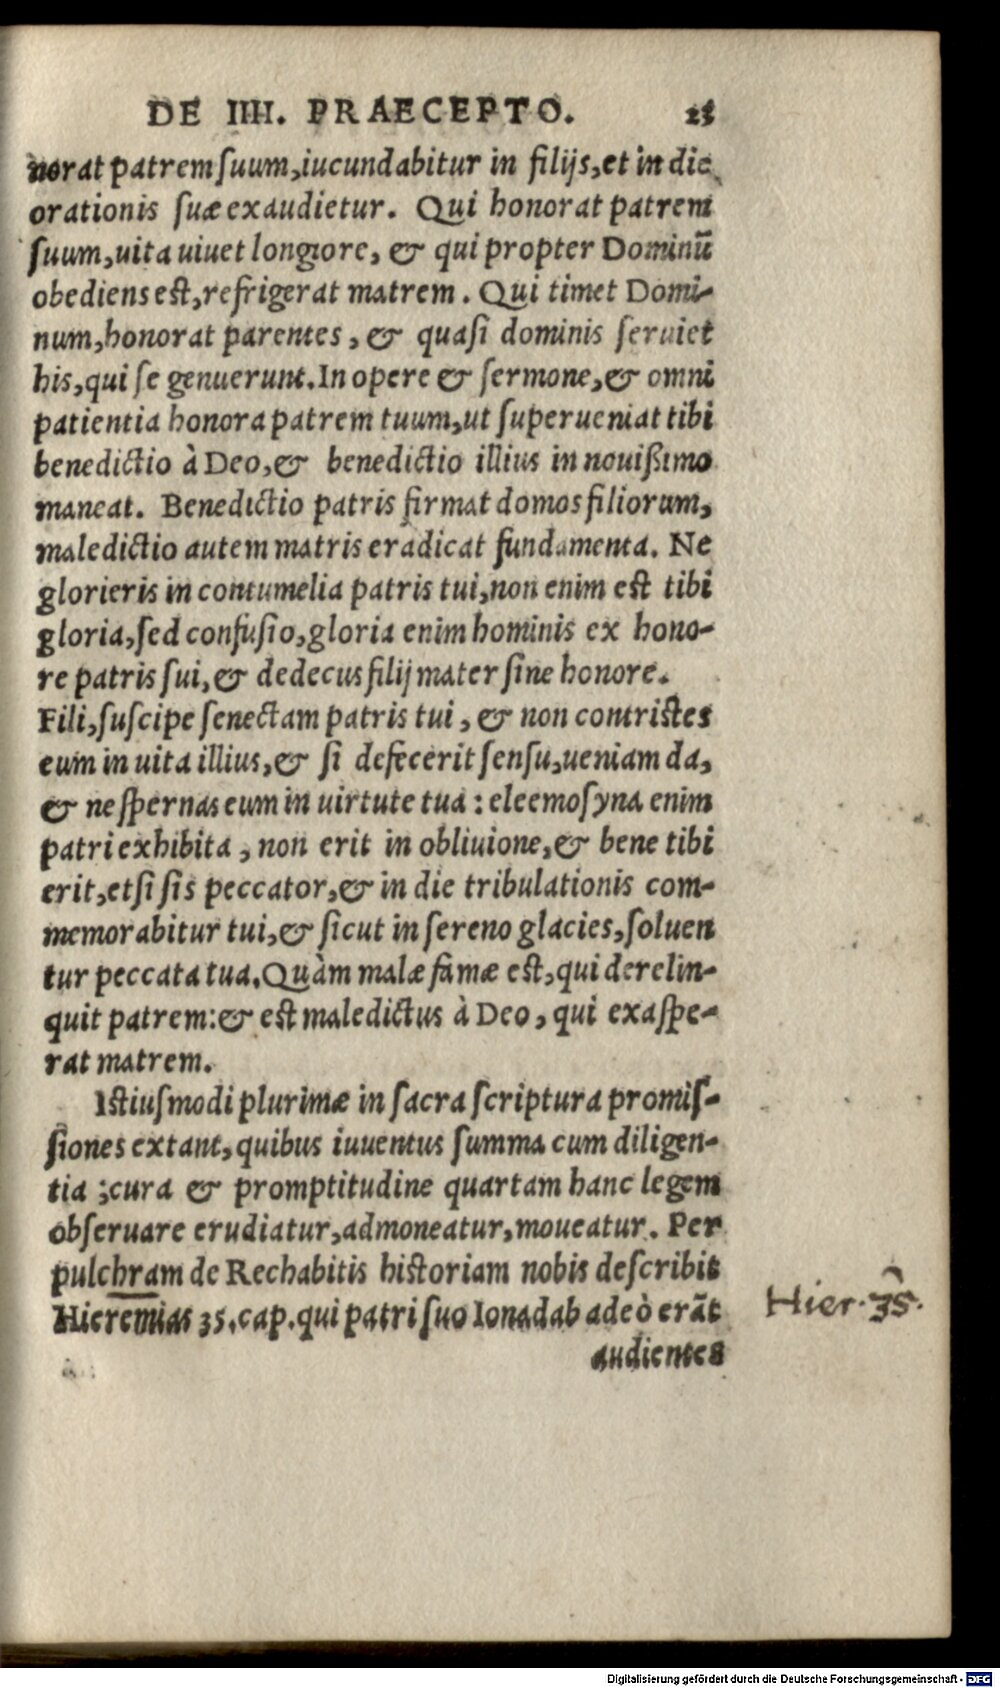 DE IIII. PRAECEPTO. 25
norat patrem suum, iucundabitur in filijs, et in die
orationis suæ exaudietur. Qui honorat patrem
suum, uita uiuet longiore, & qui propter Dominū
obediens est, refrigerat matrem. Qui timet Domi-
num, honorat parentes, & quasi dominis seruiet
his, qui se genuerunt. In opere & sermone, & omni
patientia honora patrem tuum, ut superueniat tibi
benedictio à Deo, & benedictio illius in nouißimo
maneat. Benedictio patris firmat domos filiorum,
maledictio autem matris eradicat fundamenta. Ne
glorieris in contumelia patris tui, non enim est tibi
gloria, sed confusio, gloria enim hominis ex hono-
re patris sui, & dedecus filij mater sine honore.
Fili, suscipe senectam patris tui, & non contristes
eum in uita illius, & si defecerit sensu, ueniam da,
& ne spernas eum in uirtute tua: eleemosyna enim
patri exhibita, non erit in obliuione, & bene tibi
erit, etsi sis peccator, & in die tribulationis com-
memorabitur tui, & sicut in sereno glacies, soluen
tur peccata tua. Quàm malæ famæ est, qui derelin-
quit patrem: & est maledictus à Deo, qui exaspe-
rat matrem.
Istiusmodi plurimæ in sacra scriptura promis-
siones extant, quibus iuuentus summa cum diligen-
tia; cura & promptitudine quartam hanc legem
obseruare erudiatur, admoneatur, moueatur. Per
pulchram de Rechabitis historiam nobis describit
Hieremias 35. cap. qui patri suo Ionadab adeò erāt
Hier. 35.
audientes
Digitalisierung gefördert durch die Deutsche Forschungsgemeinschaft - DFG